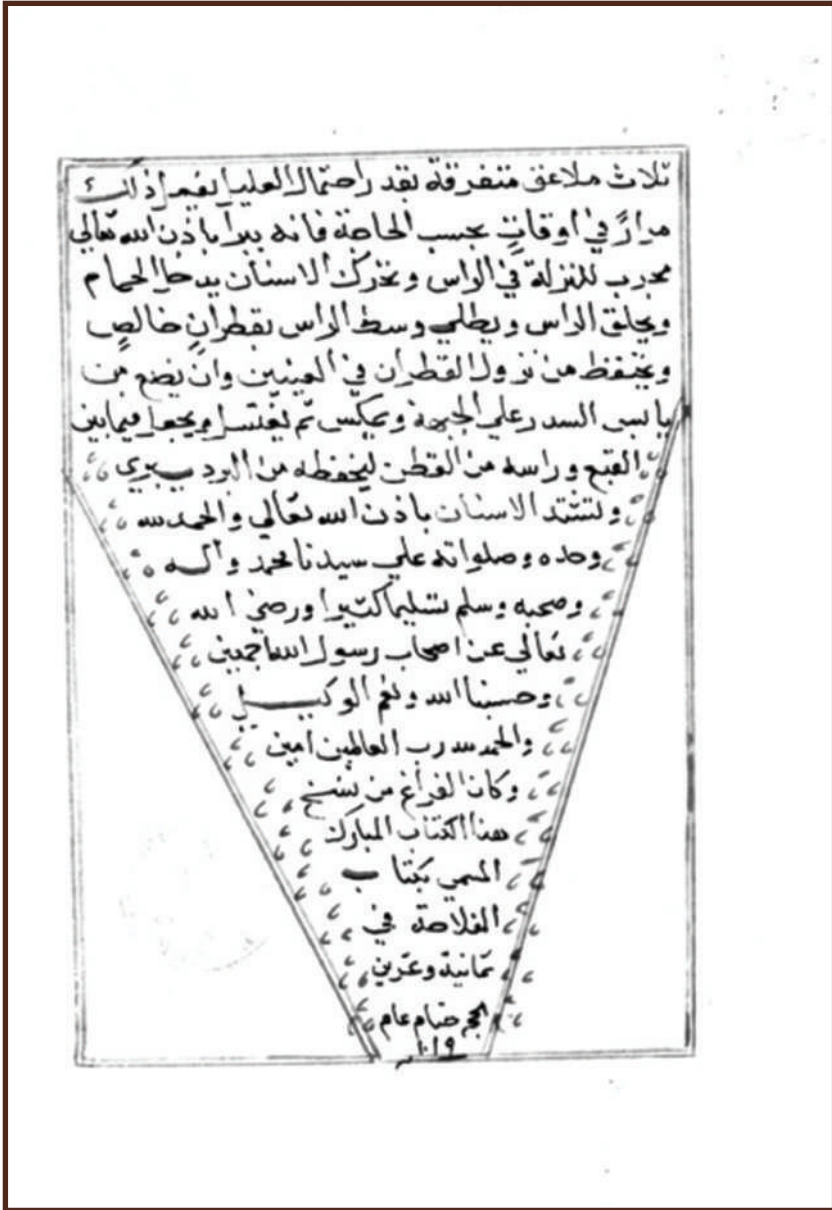 ثلاث ملاعق متفرقة بقدر احتمال العليل يفعل ذلك
مرارً في اوقاتٍ بحسب الحاجة فانه يبرأ باذن الله تعالي
مجرب للنزلة في الراس وتحرك الاسنان يدخل الحمام
ويحلق الراس ويطلي وسط الراس بقطرانٍ خالصٍ
ويحتفظ من نزول القطران في العينين وان يضع من
يابس السدر علي الجبهة ثم يغتسل ويجعل فيمابين
القبع وراسه من القطن ليحفظه من البرد يبري
ولتشتد الاسنان باذن الله تعالي والحمد لله
وحده وصلواته علي سيدنا محمد وآله
وصحبه وسلم تسليما كثيرا ورضي الله
تعالي عن اصحاب رسول الله اجمعين
وحسبنا الله ونعم الوكيل
والحمد لله رب العالمين امين
وكان الفراغ من نسخ
هذا الكتاب المبارك
المسمي بكتاب
الفلاحة في
ثمانية وعشرين
ختام عام
١٠١٩